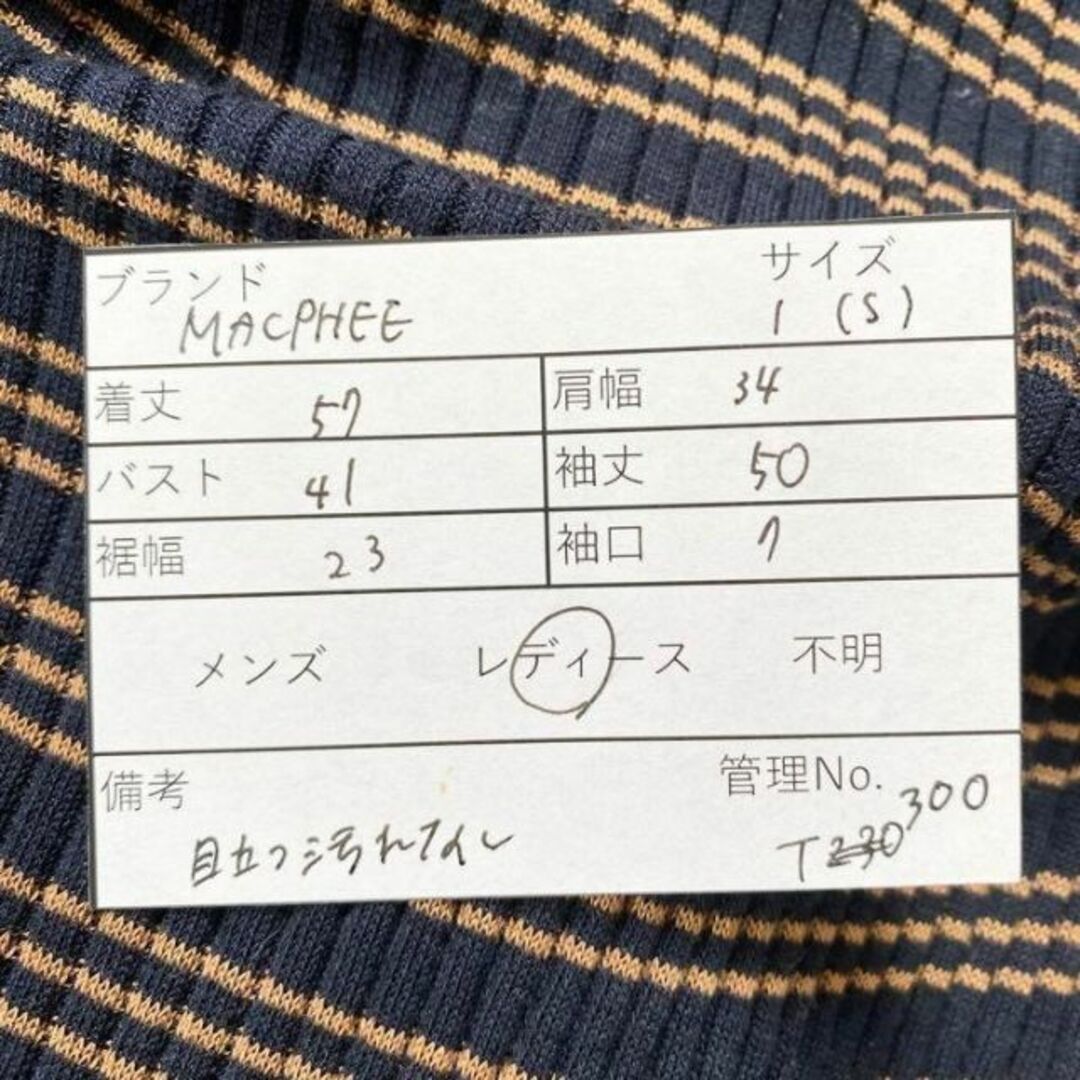 ブランド サイズ
MACPHEE 1 (S)
着丈 57 肩幅 34
バスト 41 袖丈 50
裾幅 23 袖口 7
メンズ レディース 不明
備考 管理No.
目立つ汚れなし T230 300